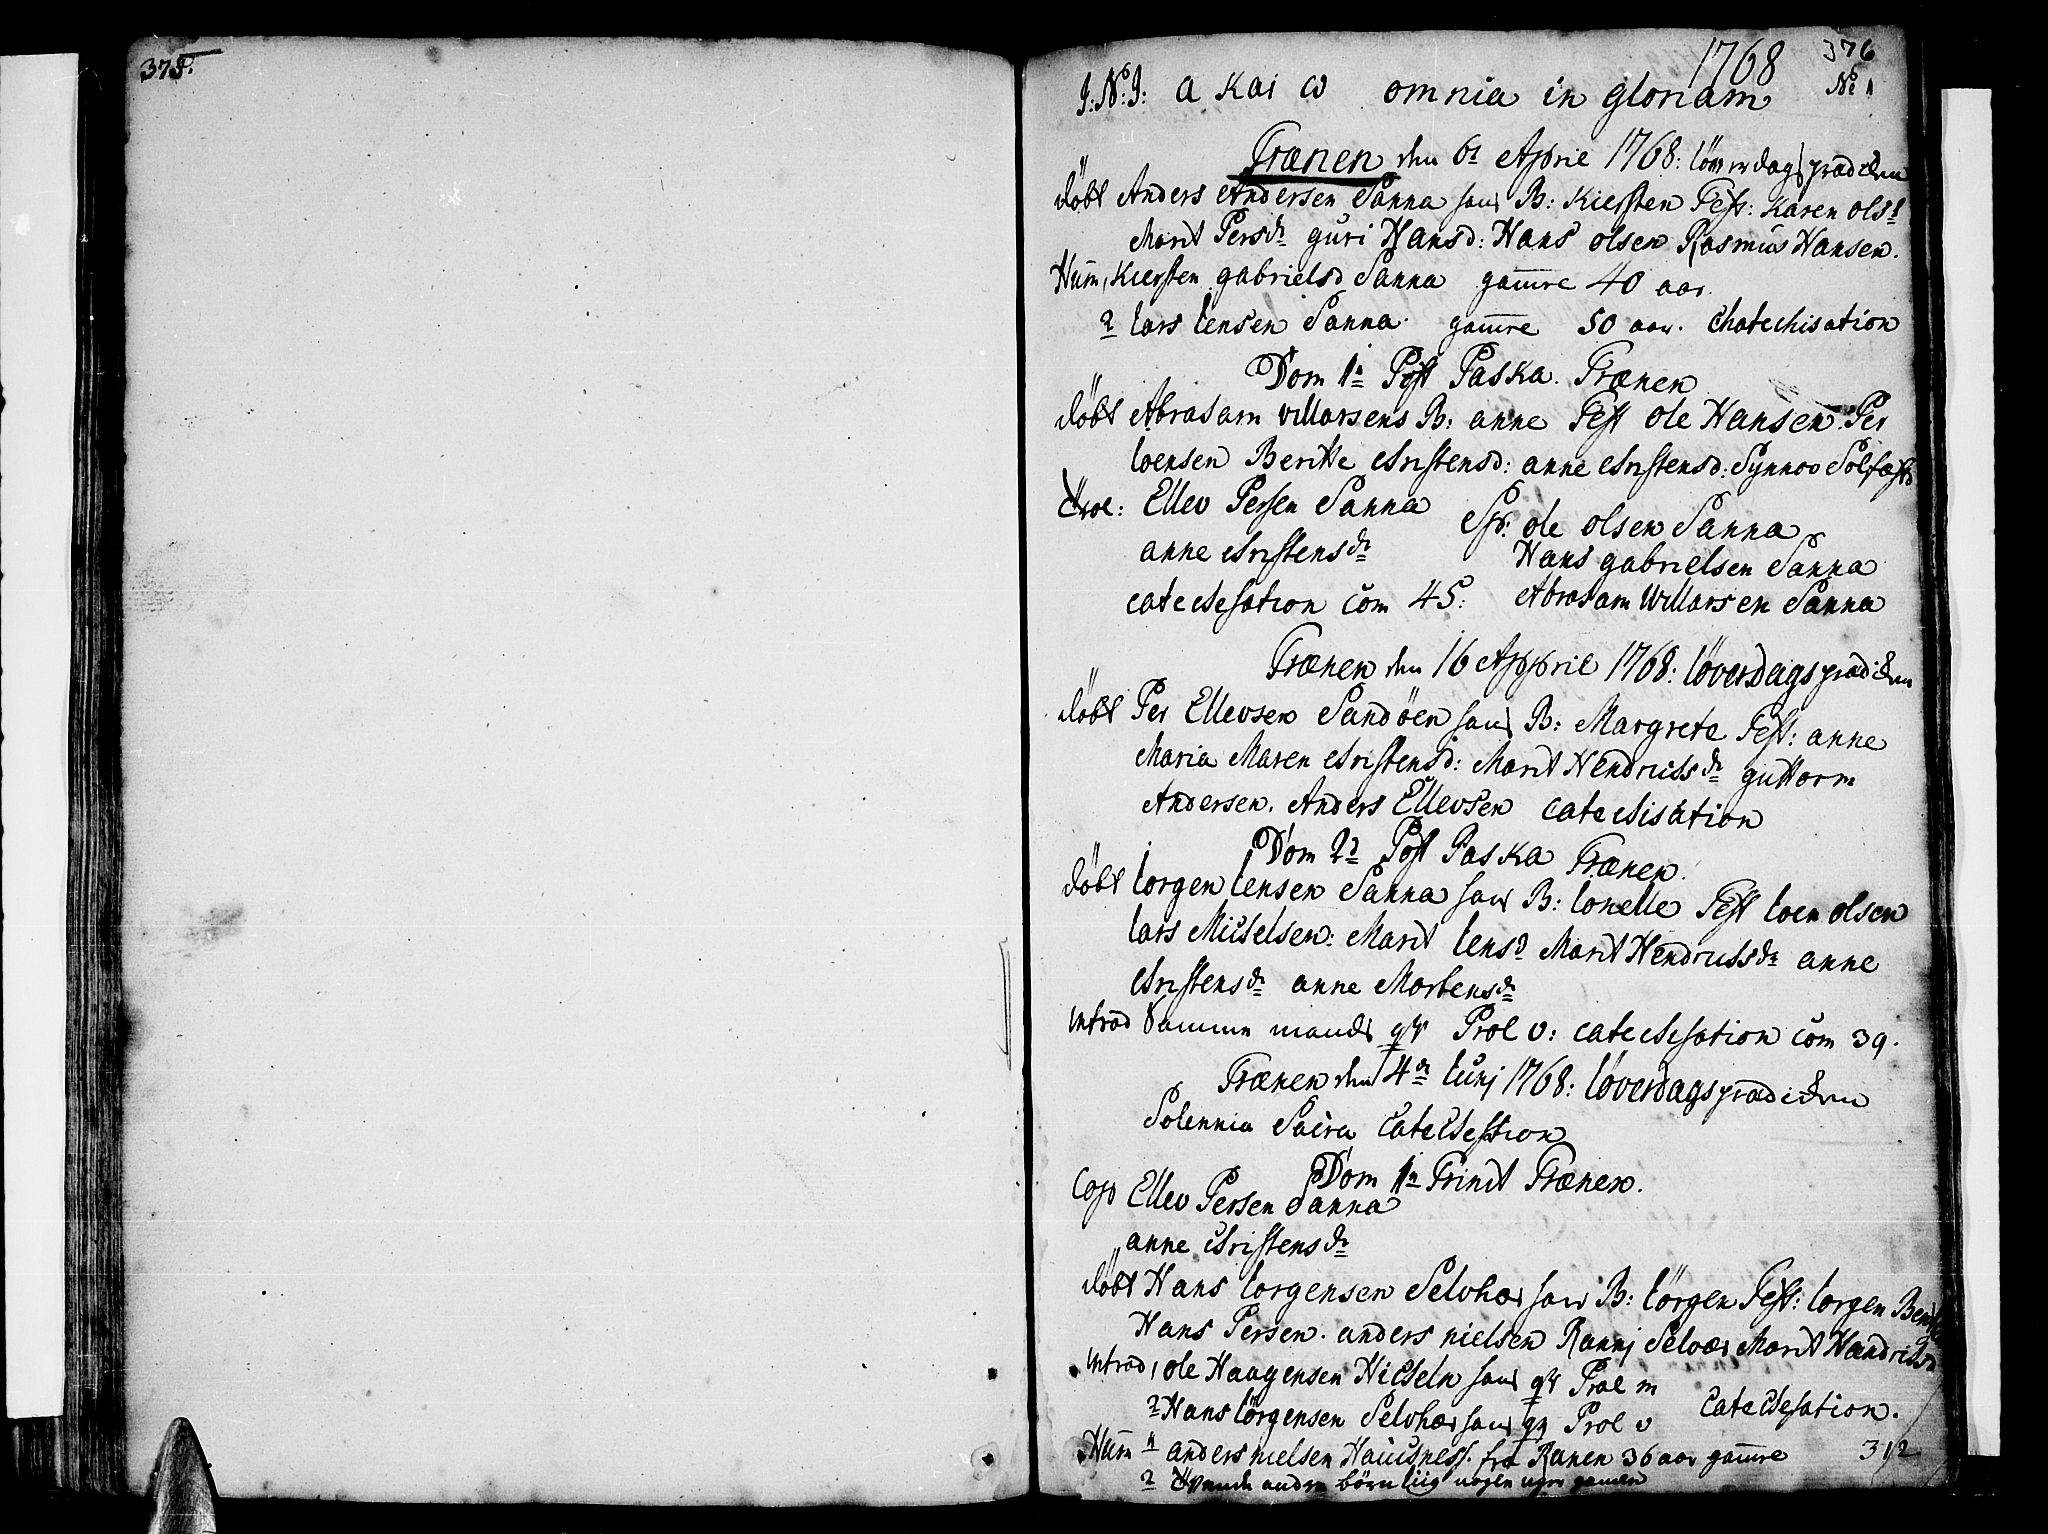 375.
1768 376
J: N: J: a kai ω omnia in gloriam No 1
Trænen den 6te April 1768: löverdags prædicken
döbt Anders Andersen Sanna hans B: Kiersten Test: Karen ols:
Marit Persdr guri Hansd: Hans olsen Rasmus Hansen.
Hum, Kiersten gabrielsd Sanna gamle 40 aar.
2 lars Iensen Sanna. gamle 50 aar. Chatechisation
Dom 1a Post Paska. Trænen
döbt Abraham Willarsens B: anne Test ole Hansen. Per
Ioensen Beritte christensd: anne christensd: Synnov
Trol: Ellev Persen Sanna Sp: ole olsen Sanna
anne christensdr Hans gabrielsen Sanna
catechesation Com 45: Abraham Willarsen Sanna
Trænen den 16 April 1768: löverdags prædicken
döbt Per Ellevsen Sandöen hans B: Margrete Test: anne
Maria Maren christensd: Marit Hendrichsdr guttorm
Andersen. Anders Ellevsen catechisation
Dom 2d Post Paska Trænen.
döbt Iorgen Iensen Sanna hans B: Ionelle Test Ioen olsen
lars Michelsen: Marit Iensd Marit Hendrichsdr anne
christensdr anne Mortensdr
introd Samme mands qv Prol v: catechesation Com 39.
Trænen den 4de Iunj 1768: löverdags prædicken
Solennia Sacra Catechesation
Dom 1a Trinit Trænen.
Cop Ellev Persen Sanna
anne christensdr
döbt Hans Iorgensen Selvhær hans B: Iörgen Test: Iorgen
Hans Persen. anders nielsen Rannj Selvær Marit
introd 1 ole Haagensen hans qv Prol m
2 Hans Iörgensen Selvhær hans qv Prol v Catechesation.
Hum 1 anders nielsen fra Ranen 36 aar gamle 312
2 andre börn liig nogen uger gamle